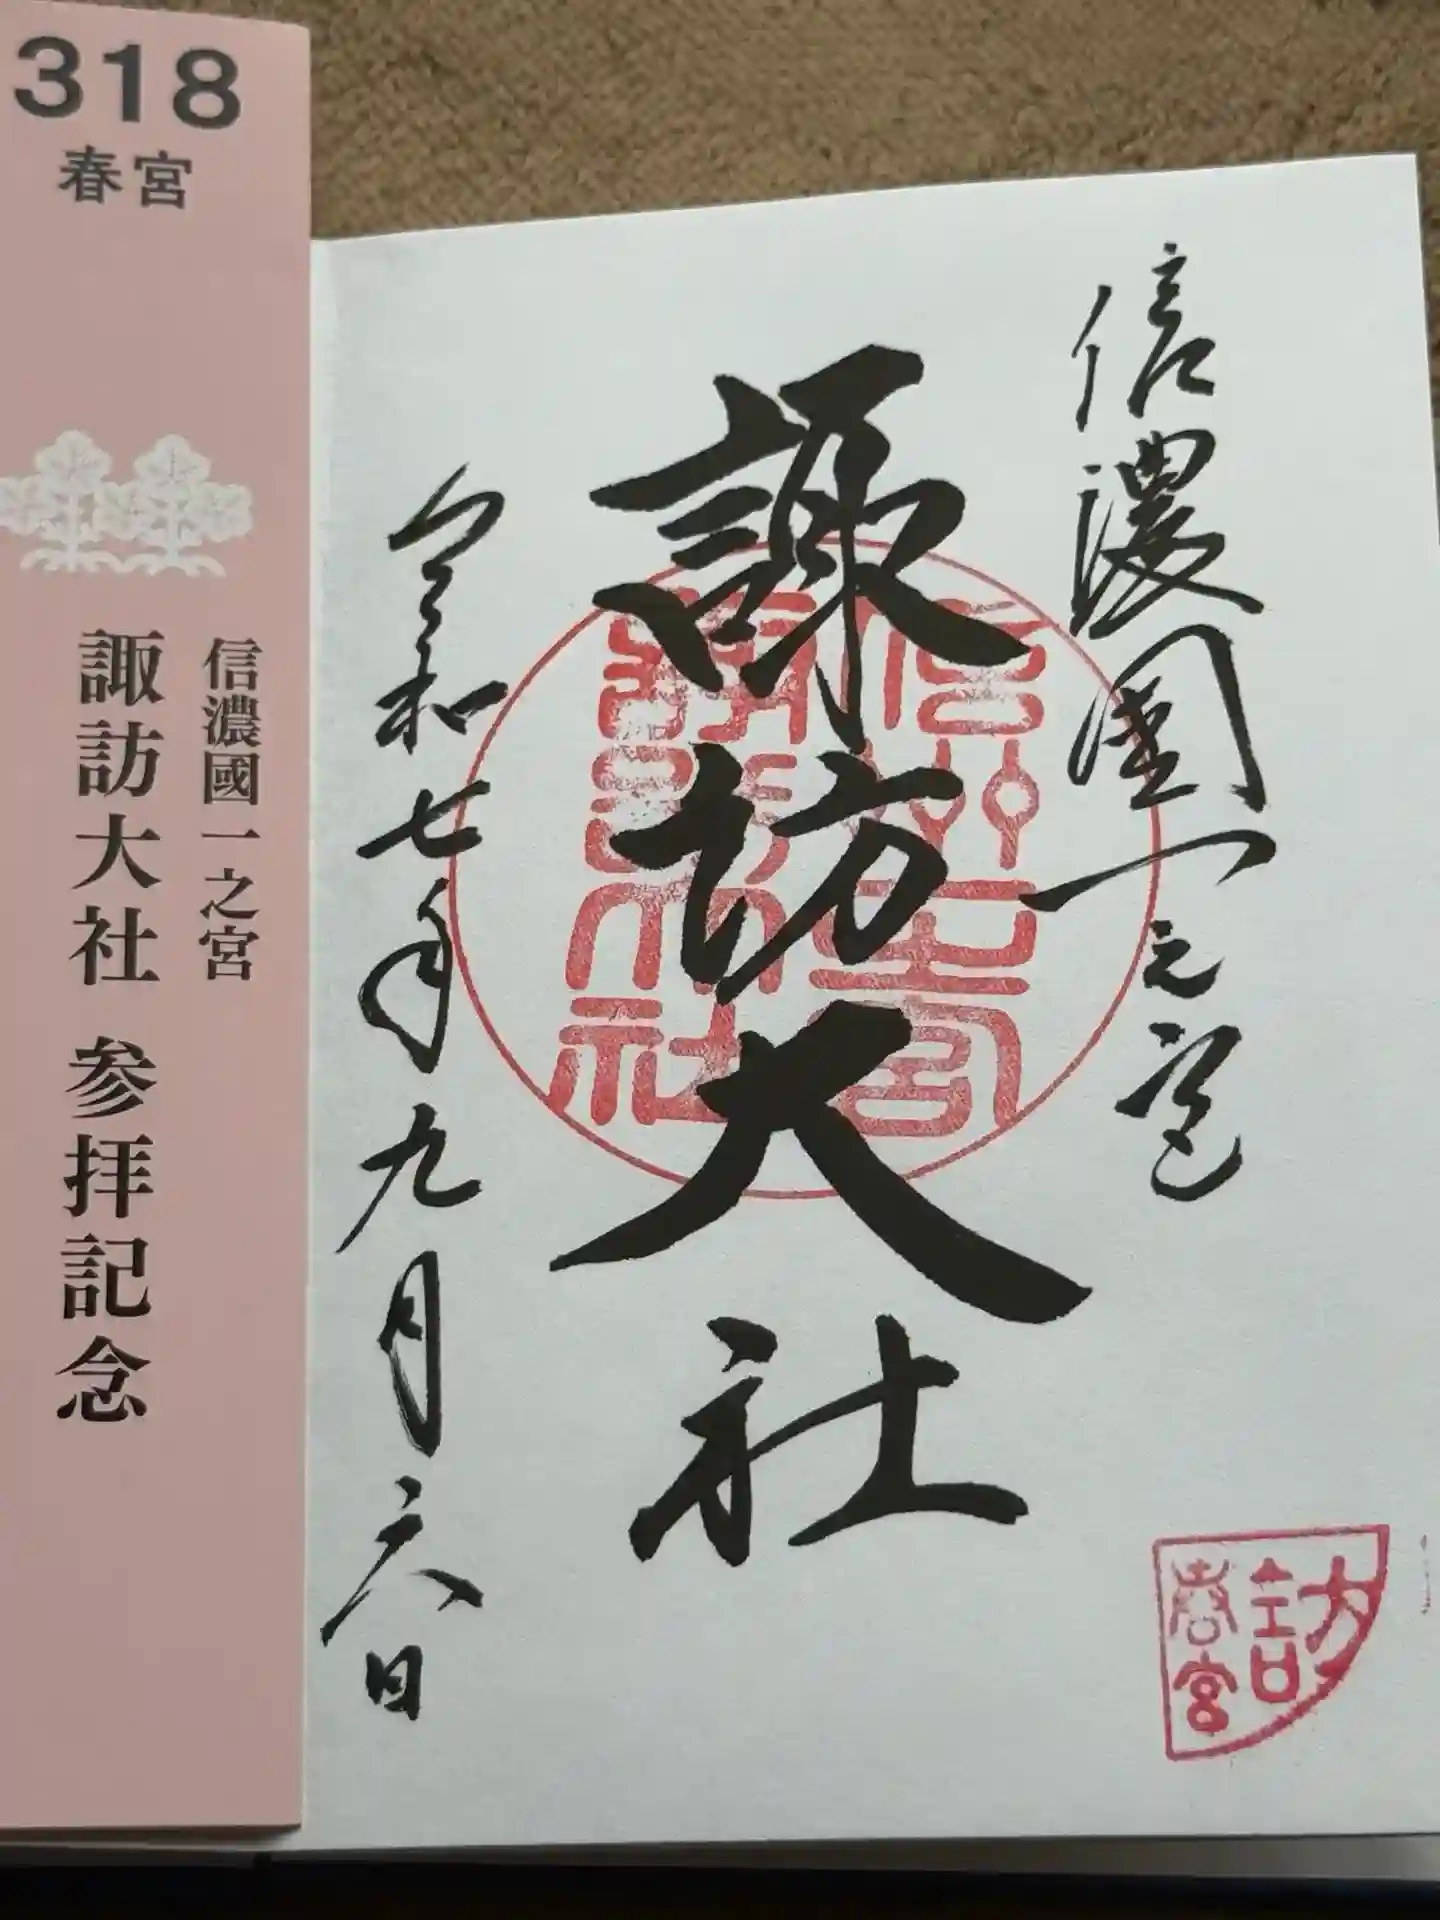 318
春宮
信濃國一之宮
諏訪大社 参拝記念
信濃國一之宮
諏訪大社
令和七年九月六日
信州一之宮
諏訪大社
訪
春宮